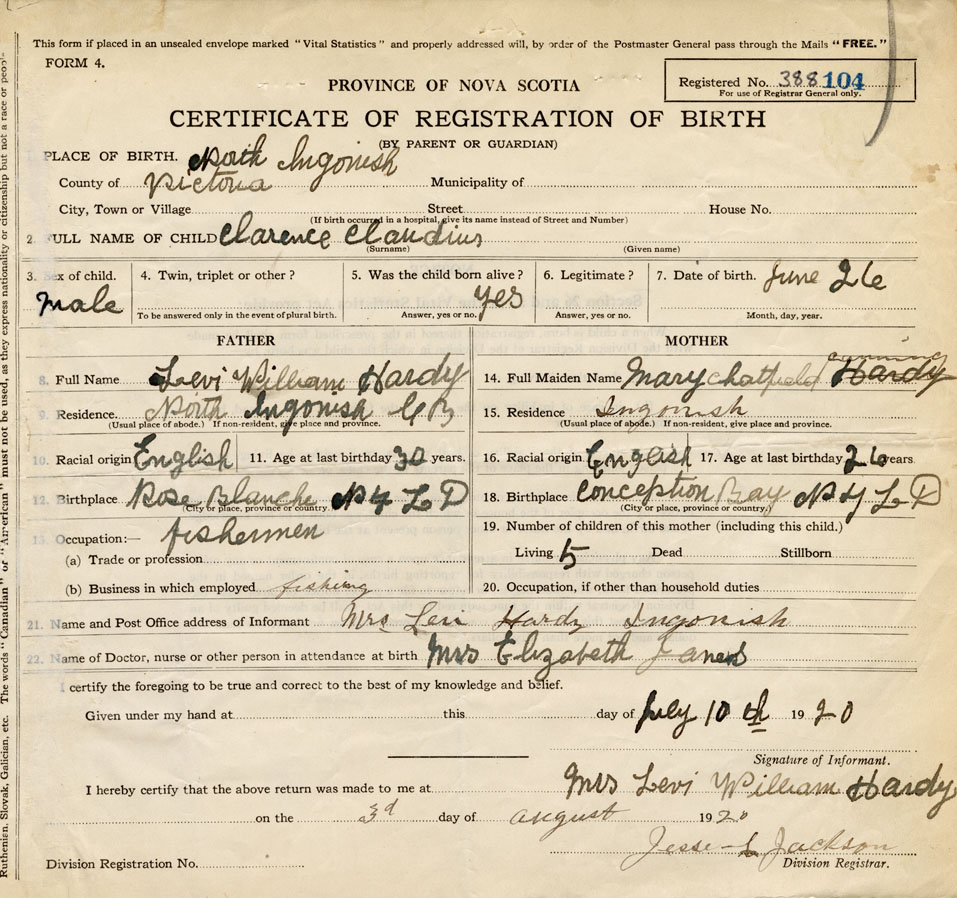 This form if placed in an unsealed envelope marked "Vital Statistics" and properly addressed will, by order of the Postmaster General pass through the Mails "FREE."
FORM 4.
Registered No. 388 104
For use of Registrar General only.
PROVINCE OF NOVA SCOTIA
CERTIFICATE OF REGISTRATION OF BIRTH
(BY PARENT OR GUARDIAN)
1. PLACE OF BIRTH. North Ingonish
County of Victoria Municipality of
City, Town or Village Street House No.
(If birth occurred in a hospital, give its name instead of Street and Number)
2. FULL NAME OF CHILD Clarence Claudius
(Surname) (Given name)
3. Sex of child. 4. Twin, triplet or other? 5. Was the child born alive? 6. Legitimate? 7. Date of birth. June 26
Male yes
To be answered only in the event of plural birth. Answer, yes or no. Answer, yes or no. Month, day, year.
FATHER
8. Full Name Levi William Hardy
9. Residence North Ingonish C B
(Usual place of abode.) If non-resident, give place and province.
10. Racial origin English 11. Age at last birthday 30 years.
12. Birthplace Rose Blanche N F L D
(City or place, province or country.)
13. Occupation:— fishermen
(a) Trade or profession
(b) Business in which employed fishing
MOTHER
14. Full Maiden Name Mary Chatfield Hardy
15. Residence Ingonish
(Usual place of abode.) If non-resident, give place and province.
16. Racial origin English 17. Age at last birthday 26 years.
18. Birthplace Conception Bay N F L D
(City or place, province or country.)
19. Number of children of this mother (including this child.)
Living 5 Dead Stillborn
20. Occupation, if other than household duties
21. Name and Post Office address of Informant Mrs Levi Hardy Ingonish
22. Name of Doctor, nurse or other person in attendance at birth Mrs Elizabeth Janes
I certify the foregoing to be true and correct to the best of my knowledge and belief.
Given under my hand at this day of July 10 th 1920
Signature of Informant.
Mrs Levi William Hardy
I hereby certify that the above return was made to me at
on the 3d day of august 1920
Jesse L Jackson
Division Registration No. Division Registrar.
Ruthenian, Slovak, Galician, etc. The words "Canadian" or "American" must not be used, as they express nationality or citizenship but not a race or peop-